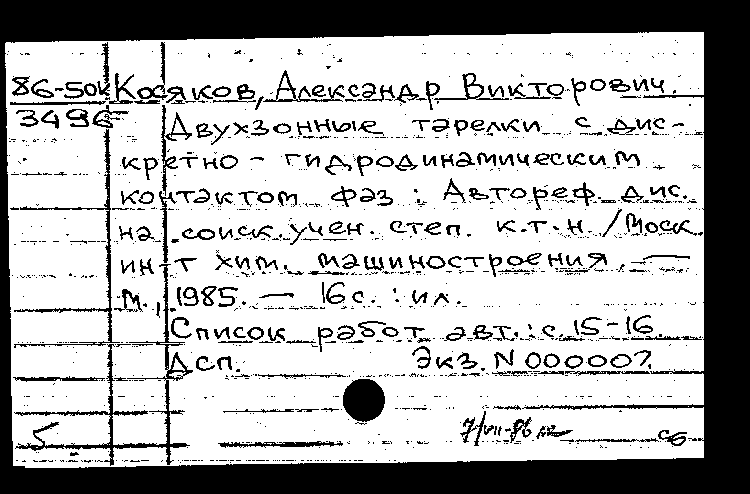 86-50к Косяков, Александр Викторович.
3496 Двухзонные тарелки с дис-
кретно-гидродинамическим
контактом фаз : Автореф. дис.
на соиск. учен. степ. к.т.н. / Моск.
ин-т хим. машиностроения. —
М., 1985. — 16 с. : ил.
Список работ авт.: с. 15-16.
Дсп. Экз. N 000007.
5 7/VII-86 сб